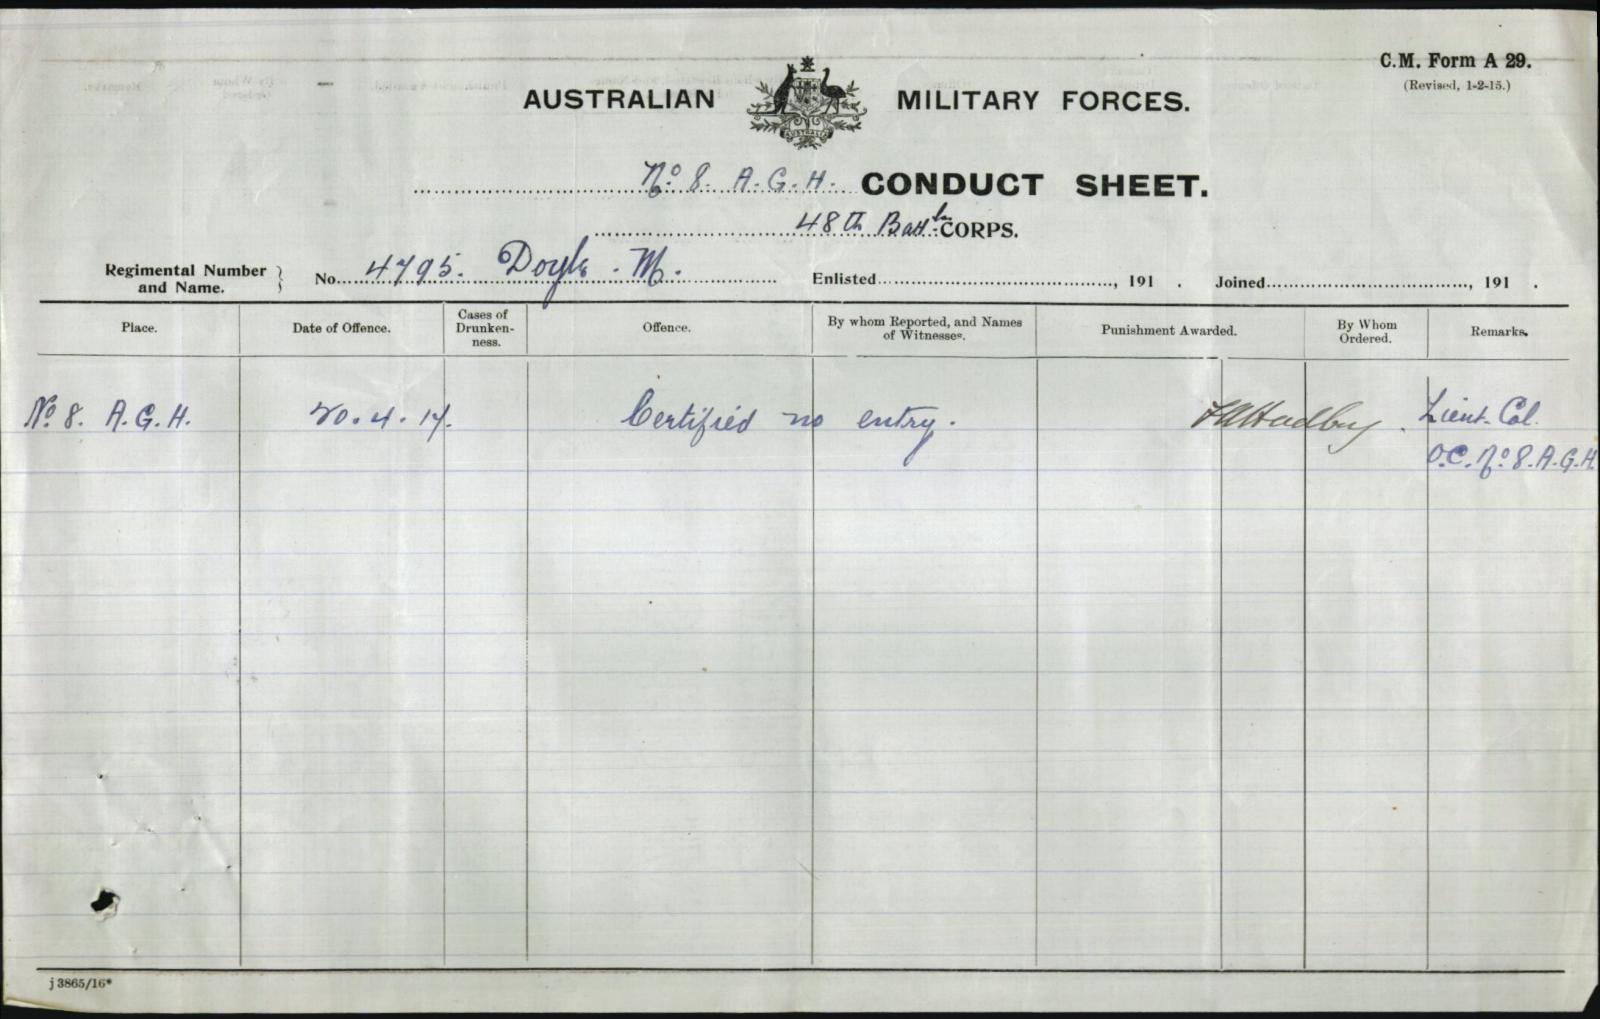 C.M. Form A 29.
(Revised, 1-2-15.)
AUSTRALIAN MILITARY FORCES.
AUSTRALIA
No 8. A.G.H. CONDUCT SHEET.
48th Battn CORPS.
Regimental Number and Name. } No. 4795. Doyle. M. Enlisted, 191 . Joined, 191 .
Place. Date of Offence. Cases of Drunken-ness. Offence. By whom Reported, and Names of Witnesses. Punishment Awarded. By Whom Ordered. Remarks.
No 8. A.G.H. 20.4.17. Certified no entry. Lieut-Col.
O.C. No 8. A.G.H.
j 3865/16*